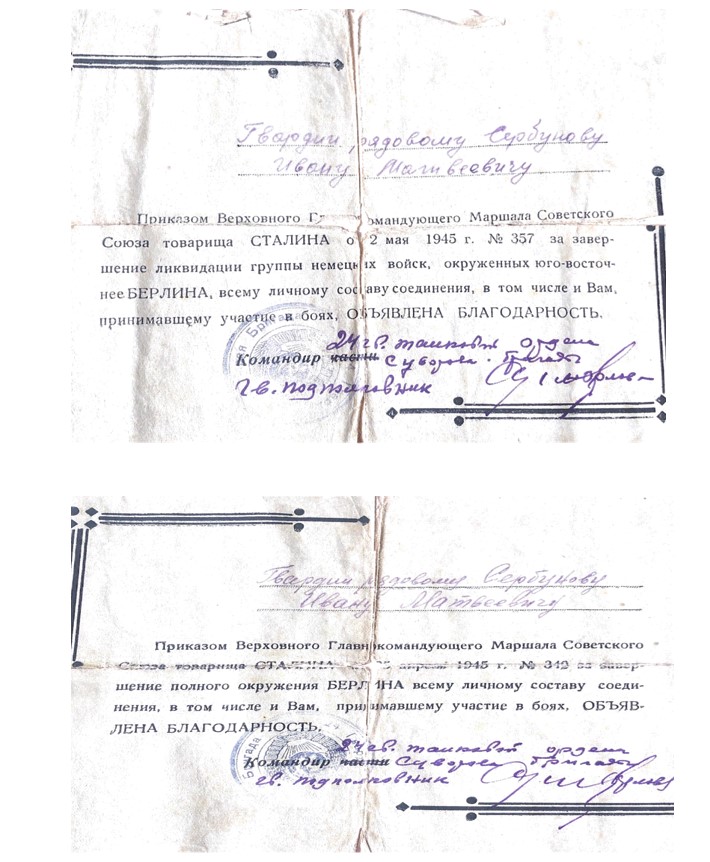 Гвардии рядовому Сербунову
Ивану Матвеевичу
Приказом Верховного Гл командующего Маршала Советского
Союза товарища СТАЛИНА о 2 мая 1945 г. № 357 за завер-
шение ликвидации группы немецких войск, окруженных юго-восточ-
нее БЕРЛИНА, всему личному составу соединения, в том числе и Вам,
принимавшему участие в боях, ОБЪЯВЛЕНА БЛАГОДАРНОСТЬ.
Бригада
24 гв. танковой ордена
Командир части Суворова бригады
Гв. подполковник
Гвардии рядовому Сербунову
Ивану Матвеевичу
Приказом Верховного Главнокомандующего Маршала Советского
Союза товарища СТАЛИНА апреля 1945 г. № 342 за завер-
шение полного окружения БЕРЛИНА всему личному составу соеди-
нения, в том числе и Вам, принимавшему участие в боях, ОБЪЯВ-
ЛЕНА БЛАГОДАРНОСТЬ.
Бригада
24 гв. танковой ордена
Командир части Суворова бригады
гв. подполковник